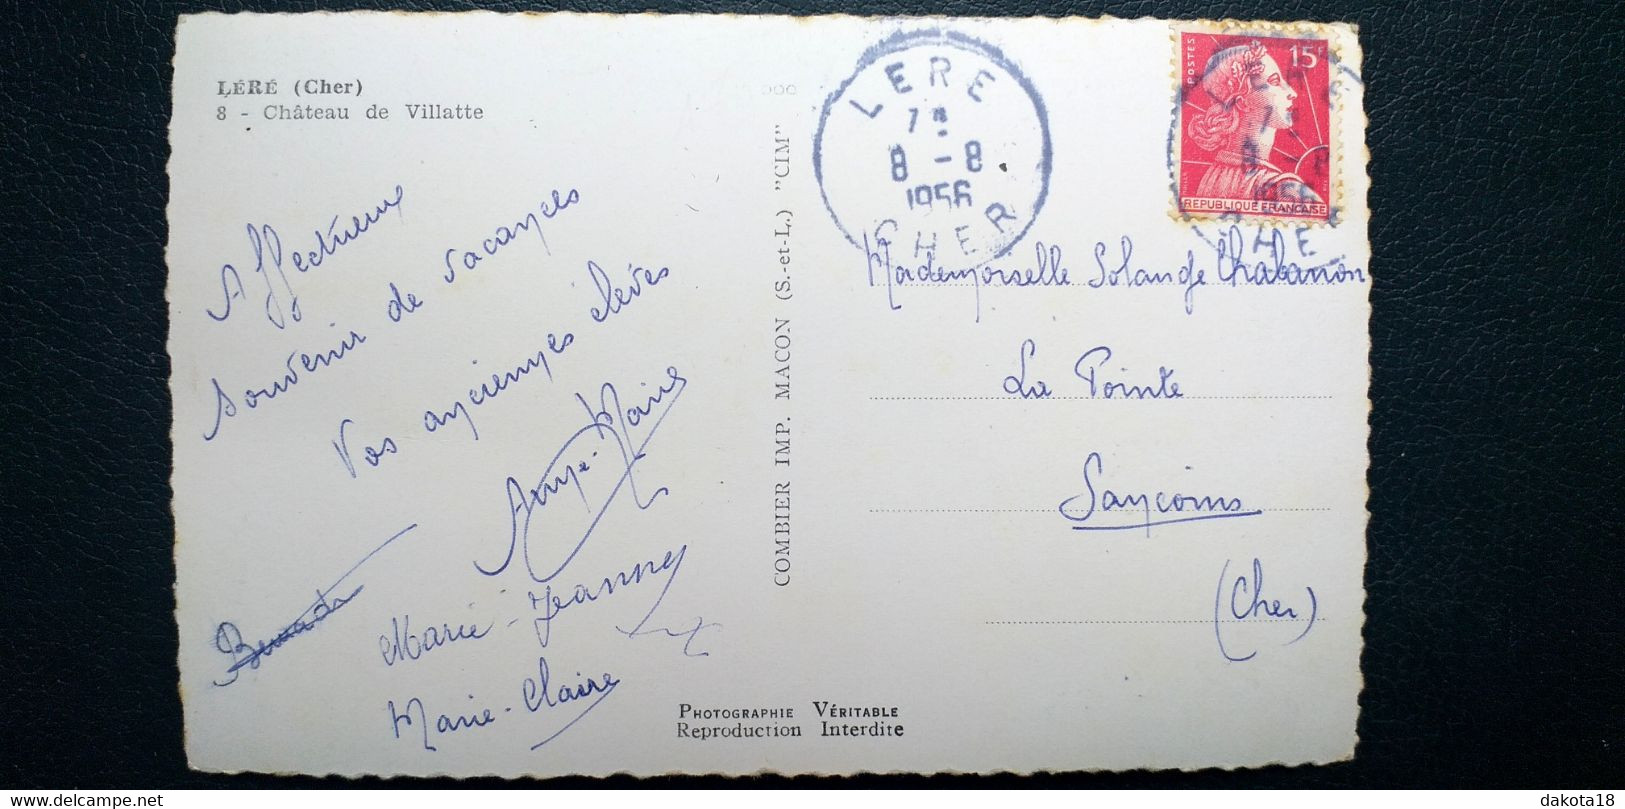 LÉRÉ (Cher)
8 - Château de Villatte
Affectueux
souvenir de vacances
Vos anciennes élèves
Anne-Marie
Marie-Jeanne
Marie-Claire
COMBIER IMP. MACON (S.-et-L.) "CIM"
PHOTOGRAPHIE VÉRITABLE
Reproduction Interdite
LERE
8 - 8
1956
CHER
POSTES
15F
REPUBLIQUE FRANCAISE
Mademoiselle Solange Chabanon
La Pointe
Sancoins
(Cher)
delcampe.net
dakota18